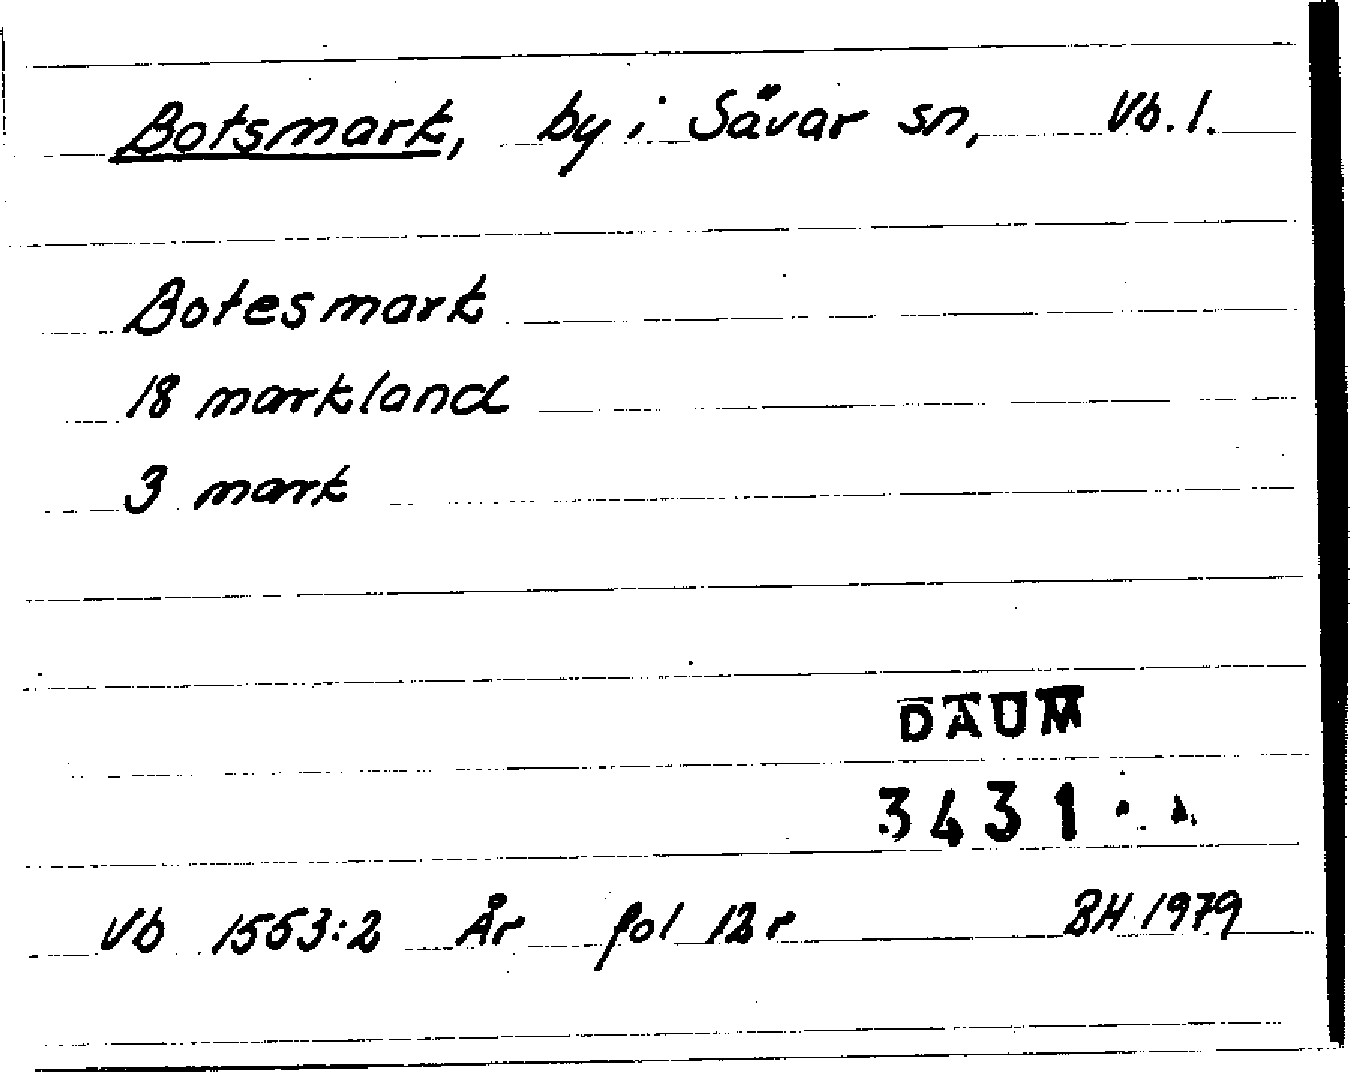 Botsmark, by i Sävar sn, Vb. l.
Botesmark
18 markland
3 mark
DAUM
3431
Vb 1553:2 År fol 12r BH 1979